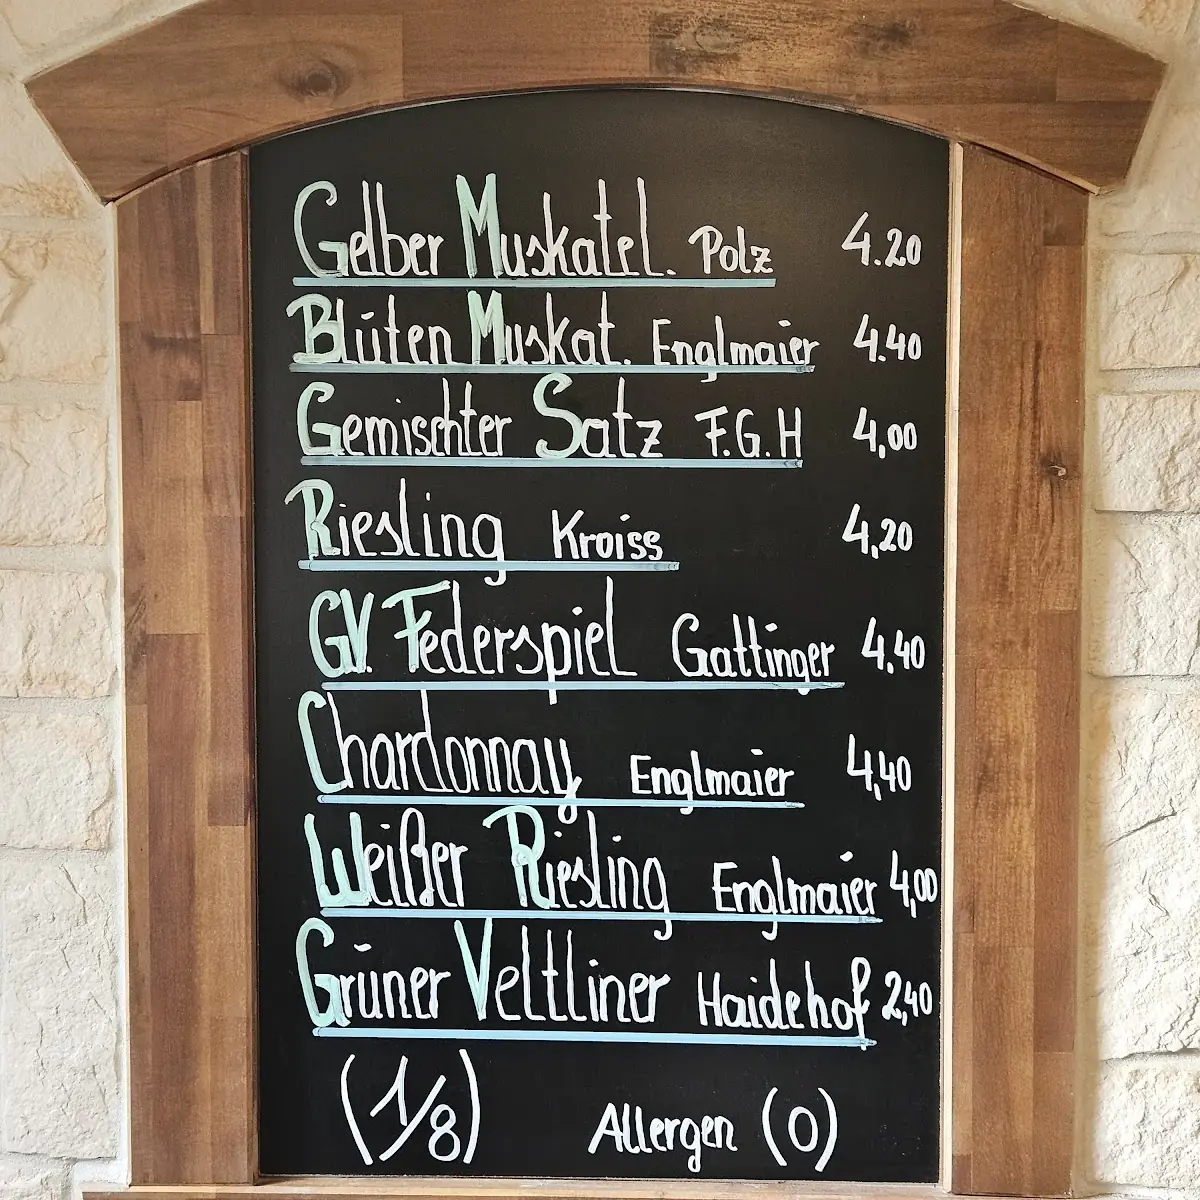 Gelber Muskatel. Polz 4.20
Blüten Muskat. Englmaier 4.40
Gemischter Satz F.G.H 4,00
Riesling Kroiss 4,20
GV. Federspiel Gattinger 4.40
Chardonnay Englmaier 4,40
Weißer Riesling Englmaier 4,00
Grüner Veltliner Haidehof 2,40
(1/8) Allergen (O)